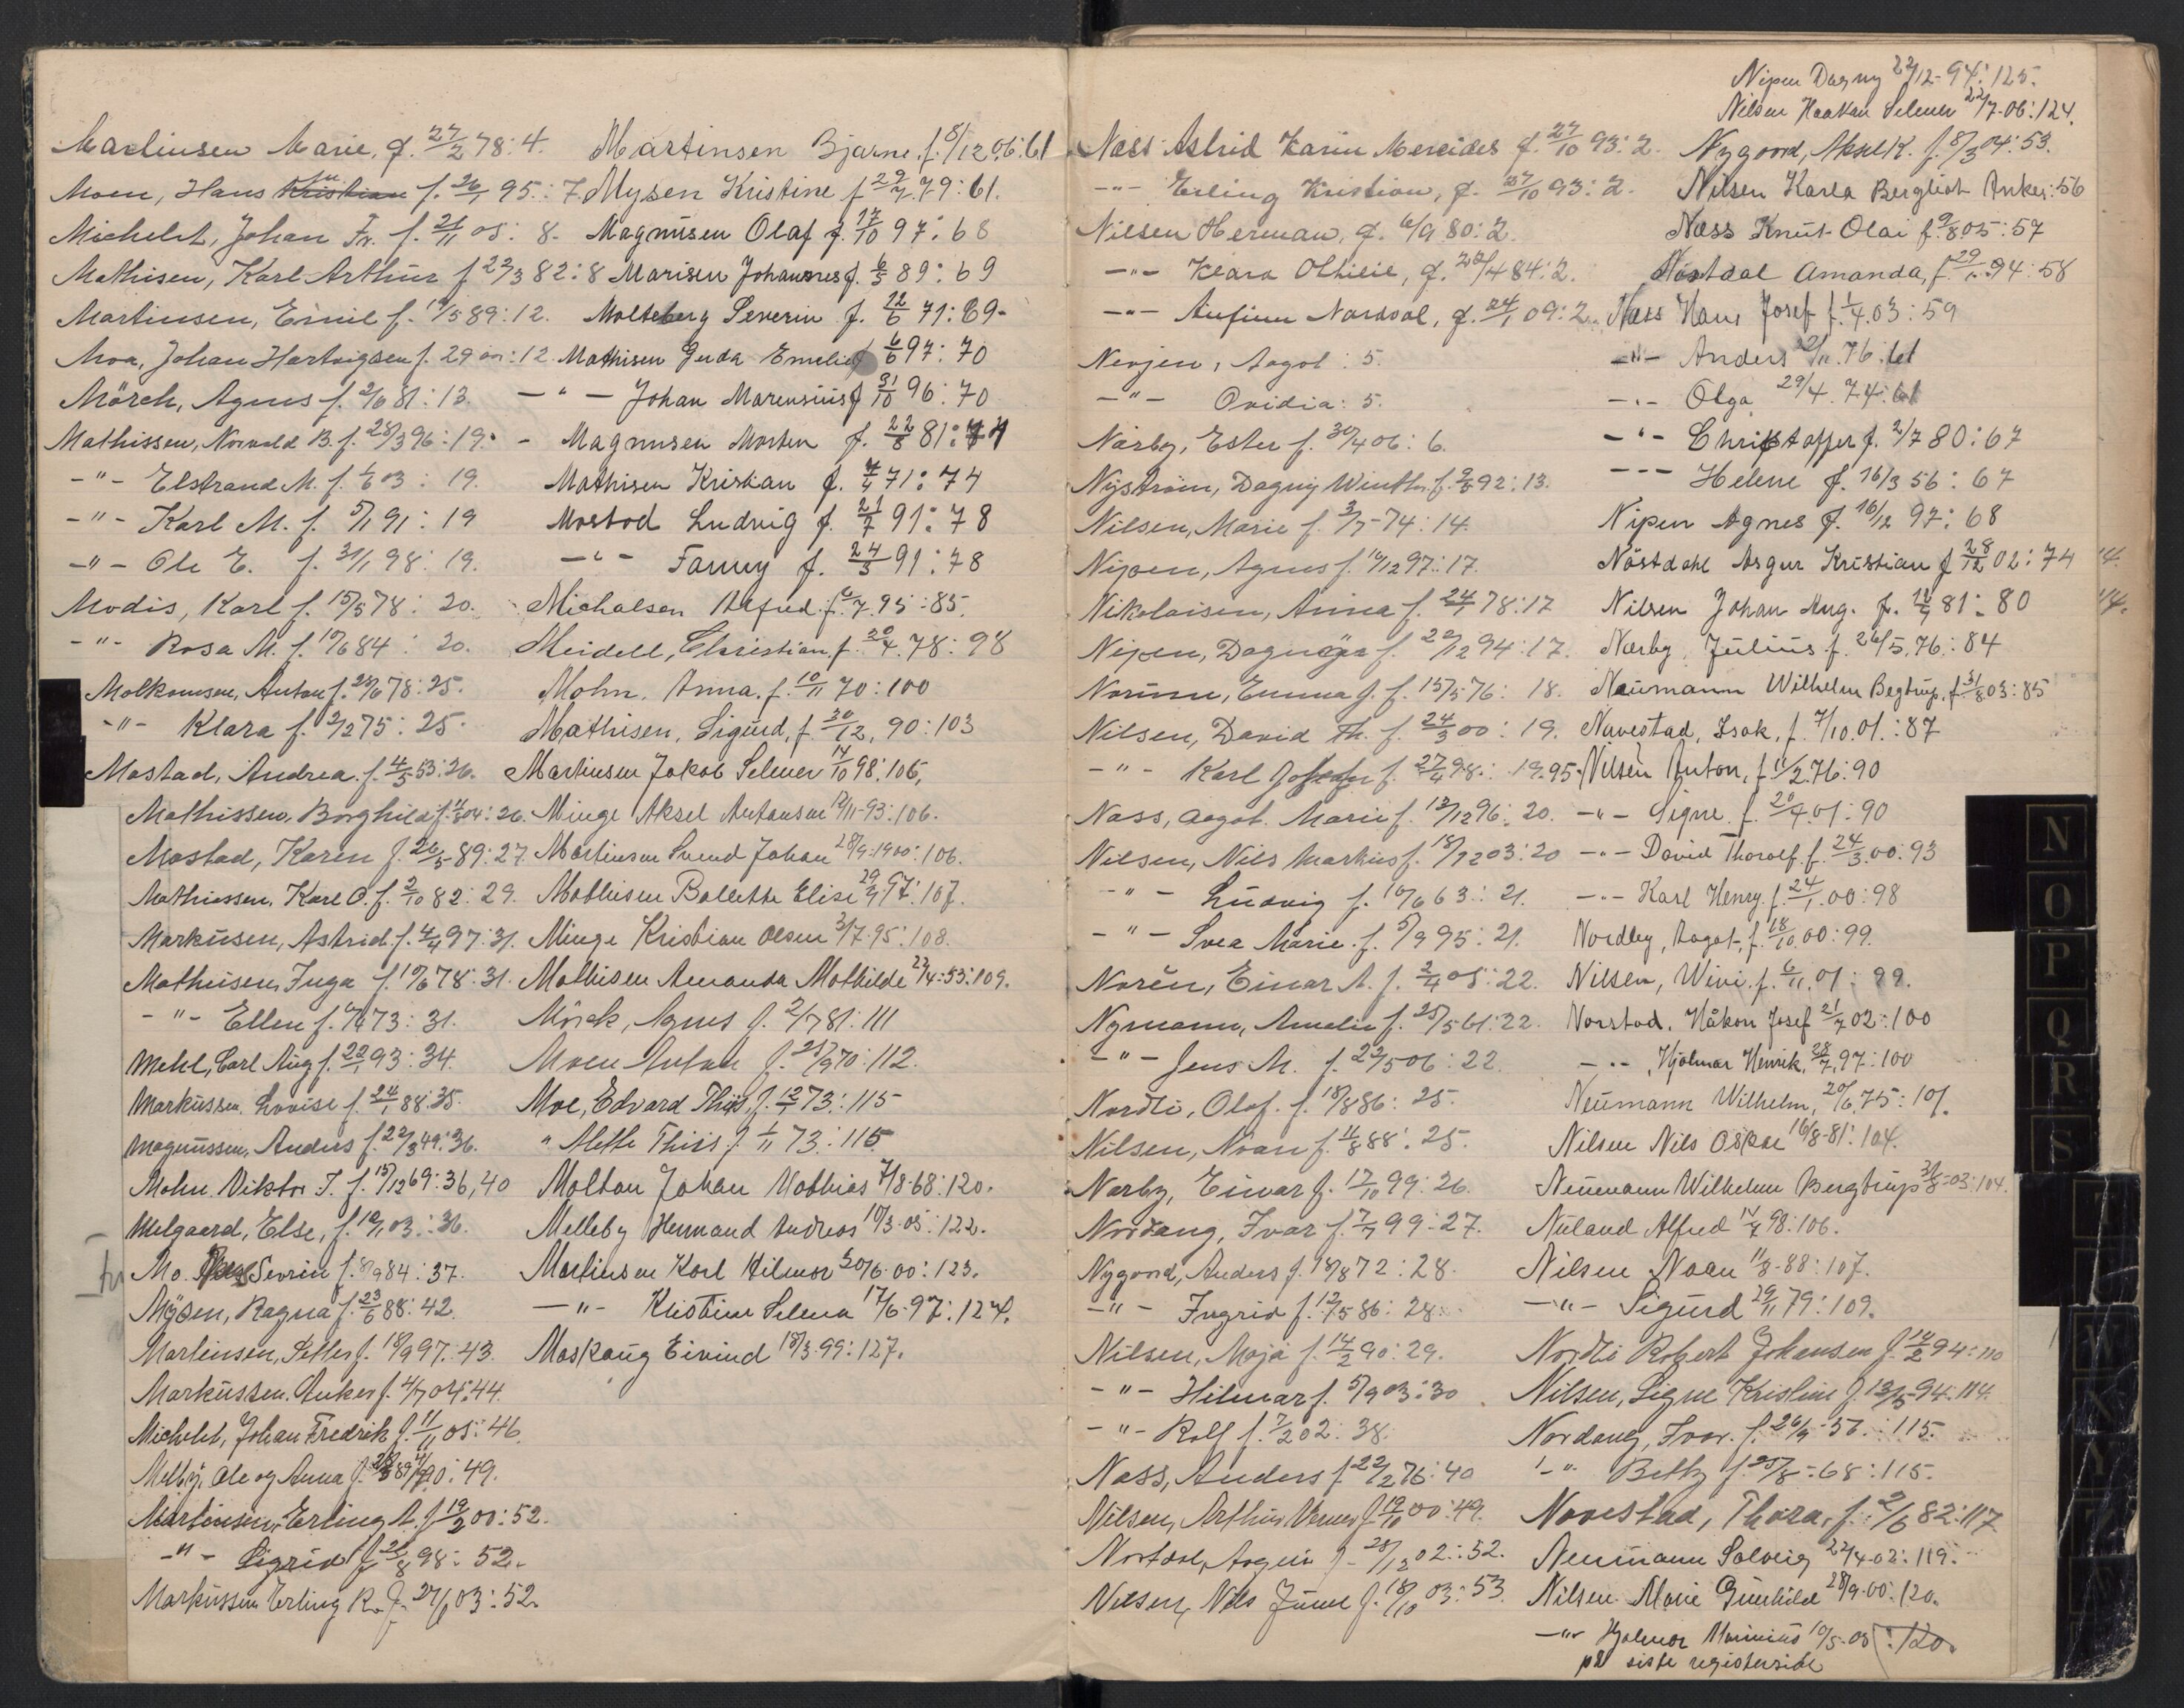 Martinsen Marie, f. 27/2 78: 4.
Moen, Hans Kristian f. 26/1 95: 7.
Michelet, Johan Fr. f. 21/11 05: 8.
Mathisen, Karl Arthur f 22/3 82: 8
Martinsen, Emil f. 19/5 89: 12.
Moa, Johan Hartvigsen f. 29 : 12
Mörch, Agnes f. 2/6 81: 13.
Mathissen, Norvald B. f. 28/3 96: 19.
-"- Elstrand M. f. 1/6 03: 19.
-"- Karl M. f. 5/1 91: 19
-"- Ole E. f. 31/1 98: 19.
Modis, Karl f. 15/5 78: 20.
-"- Rosa M. f. 19/6 84: 20.
Molkomsen, Anton f. 78: 25.
-"- Klara f. 2/2 75: 25.
Mostad, Andrea f. 4/5 53: 26.
Mathissen, Borghild f. 04: 26.
Mostad, Karen f. 26/5 89: 27.
Mathiassen, Karl O. f. 2/10 82: 29.
Markusen, Astrid f. 4/4 97: 31.
Mathisen, Inga f. 19/6 78: 31.
-"- Ellen f. 73: 31.
Mehl, Carl Aug f. 22/1 93: 34.
Markussen, Lovise f. 24/1 88: 35.
Magnussen, Anders f. 22/3 49: 36.
Mohn Viktor J. f. 15/12 69: 36, 40
Melgaard, Else, f. 19/1 03: 36.
Mo Sevrin f. 8/9 84: 37.
Mysen, Ragna f. 23/6 88: 42.
Martinsen, Petter f. 18/9 97: 43.
Markussen, Anker f. 4/7 04: 44.
Michelet, Johan Fredrik f. 11/11 05: 46.
Melby, Ole og Anna f. 90: 49.
Martinsen, Erling A. f 19/2 00: 52.
-"- Sigrid f 98: 52.
Markussen Erling R. f. 03: 52.
Martinsen Bjarne f. 8/12 06: 61
Mysen Kristine f 29/7 79: 61.
Magnusen Olaf f. 17/10 97: 68
Marisen Johannes f. 6/5 89: 69
Molteberg Severin f. 22/6 71: 69.
Mathisen Gerda Emelie f 6/6 97: 70
-"- Johan Marensius f 31/10 96: 70
Magnusen Morten f. 22/8 81: 74
Mathisen Kristian f. 4/4 71: 74
Mostod Ludvig f. 21/7 91: 78
-"- Fanny f. 24/5 91: 78
Michalsen Alfred f. 6/7 95: 85.
Meidell, Christian f. 20/4 78: 98
Mohn, Anna, f. 10/11 70: 100
Mathisen, Sigurd, f. 30/12, 90: 103
Martinsen Jakob Selmer 14/10 98: 106,
Minge Aksel Antonsen 12/11-93: 106.
Martinsen Svend Johan 28/9-1900: 106.
Mathisen Bollette Elise 29/9 97: 107.
Minge Kristian Olsen 3/7-95: 108.
Mathisen Amanda Mathilde 23/4-53: 109.
Mörck, Agnes f. 2/7 81: 111
Moen Anton f. 21/9 70: 112.
Moe, Edvard Thiis f. 12/1 73: 115
" Mette Thiis f 1/11 73: 115
Moltau Johan Mathias 7/8-68: 120.
Melleby Hermand Andreas 10/3-05: 122.
Martinsen Karl Hilmar 30/6-00: 123.
-"- Kristine Selma 17/6-97: 124.
Maskaug Eivind 18/3-99: 127.
Nipen Dagny 22/12-94: 125.
Nilsen Haakon Selmer 22/7-06: 124.
Næss Astrid Karin Mercides f. 27/10 93: 2.
-"- Erling Kristian, f. 27/10 93: 2.
Nilsen Herman, f. 6/9 80: 2.
-"- Klara Othilie, f. 20/4 84: 2.
-"- Anfinn Nordvol, f. 24/1 09: 2.
Nerjen, Aagot: 5.
-"- Ovidia: 5.
Nærby, Ester f. 30/4 06: 6.
Nyström, Dagny Winth. f. 92: 13.
Nilsen, Marie f. 3/7-74: 14.
Nipen, Agnes f. 16/12 97: 17.
Nikolaisen, Anna f. 24/1 78: 17
Nipen, Dagny f. 22/12 94: 17.
Norum, Emma J. f. 15/5 76: 18.
Nilsen, David Th. f. 24/3 00: 19.
-"- Karl f. 27/4 98: 19. 95
Næss, Aagot Marie f. 12/12 96: 20.
Nilsen, Nils Markus f. 18/12 03: 20
-"- Ludvig f. 10/6 63: 21.
-"- Svea Marie f. 5/9 95: 21.
Norén, Einar A. f. 2/4 05: 22.
Nymann, Amelie f. 25/5 61: 22.
-"- Jens M. f. 22/5 06: 22.
Nordli, Olaf f. 18/8 86: 25.
Nilsen, Noan f. 11/8 88: 25.
Nærby, Einar f. 17/10 99: 26.
Nordang, Ivar f. 7/7 99: 27.
Nygoord, Anders f. 18/8 72: 28.
-"- Ingrid f. 12/5 86: 28.
Nilsen, Maja f. 14/2 90: 29.
-"- Hilmar f. 5/9 03: 30
-"- Rolf f. 7/2 02: 38.
Næss, Anders f. 22/2 76: 40
Nilsen, Arthur Verner f. 19/10 00: 49.
Nostdal, Asgeir f. 28/12 02: 52.
Nilsen, Nils June f. 18/10 03: 53.
Nygoord, Aksel K. f. 8/3 04: 53.
Nilsen Karla Bergliot Anker: 56
Næss Knut Olai f. 9/8 05: 57
Nöstdal Amanda, f. 94: 58
Næss Hans Josef f. 1/4 03: 59
-"- Anders 22/2 76: 61
-"- Olga 29/4 74: 61
-"- Christoffer f. 2/7 80: 67
--- Helene f. 16/3 56: 67
Nipen Agnes f. 16/12 97: 68
Nöstdahl Asgur Kristian f 28/12 02: 74
Nilsen Johan Aug. f. 81: 80
Nærby, Julius f. 26/5 76: 84
Neumann Wilhelm Begtrup, f. 31/8 03: 85
Navestad, Isak, f. 7/10 01: 87
Nilsen Anton, f 11/2 76: 90
-"- Signe f. 20/4 01: 90
-"- David Thorolf f. 24/3 00: 93
-"- Karl Henry f. 24/1 00: 98
Nordley, Aagot, f. 18/10 00: 99.
Nilsen, Wivi f. 6/11 01: 99.
Norstad, Håkon Josef 21/7 02: 100
-"- Hjalmar Henrik, 28/7 97: 100
Neumann Wilhelm, 20/6 75: 101.
Nilsen Nils Oskar 16/8-81: 104.
Neumann Wilhelm Bergtrup 31/8-03: 104.
Nuland Alfred 14/4 98: 106.
Nilsen Noan 11/8-88: 107.
-"- Sigurd 29/11 79: 109.
Nordli Robert Johansen f. 14/2 94: 110
Nilsen, Signe Kristine f. 13/5-94: 114.
Nordang, Ivar f. 26/9-56: 115.
-"- Betty f. 25/8-68: 115.
Navestad, Thora, f. 2/6 82: 117
Neumann Solveig 22/4-02: 119.
Nilsen Marie Gunhilde 28/9-00: 120.
-"- Hjalmar Marinius 10/5-05: 120.
på siste registerside
N
O
P
Q
R
S